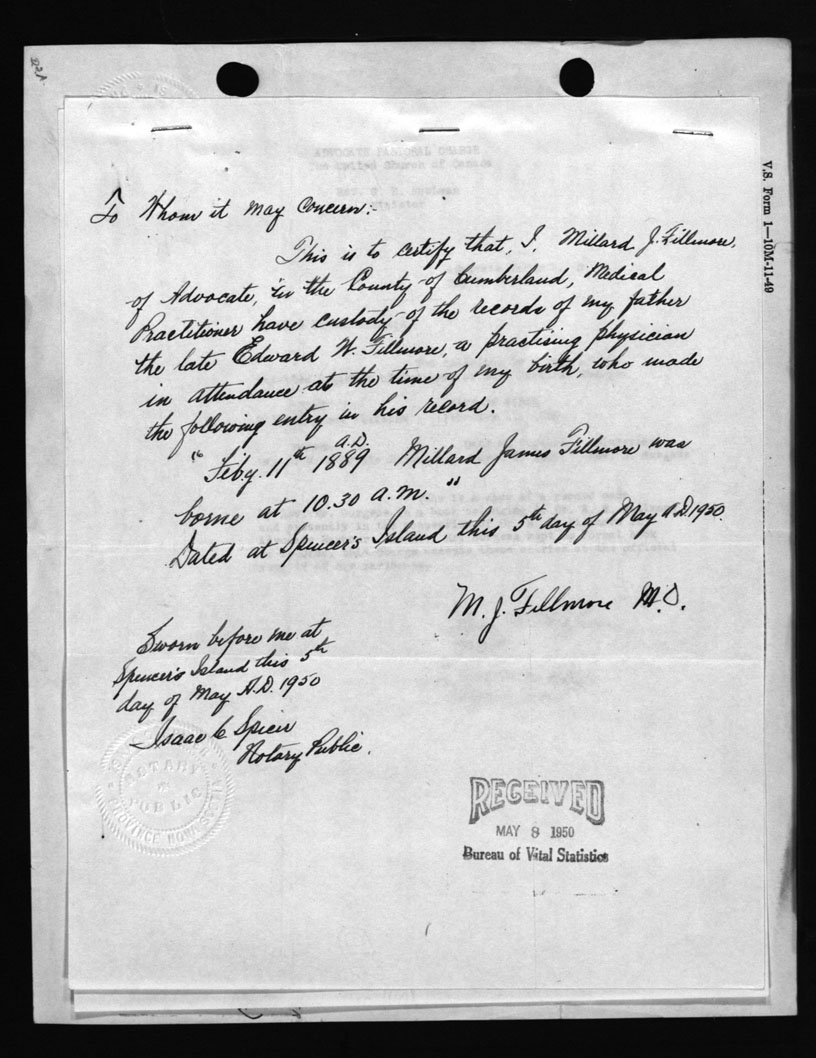 To Whom it May Concern:-
This is to certify that, I, Millard J. Fillmore,
of Advocate, in the County of Cumberland, Medical
Practitioner have custody of the records of my father
the late Edward W. Fillmore, a practising physician
in attendance at the time of my birth, who made
the following entry in his record.
A.D.
"Feby. 11th 1889 Millard James Fillmore was
borne at 10.30 a.m."
Dated at Spencer's Island this 5th day of May A.D. 1950.
M. J. Fillmore M.D.
Sworn before me at
Spencer's Island this 5th
day of May A.D. 1950
Isaac C Spicer
Notary Public.
NOTARY
PUBLIC
PROVINCE NOVA SCOTIA
RECEIVED
MAY 8 1950
Bureau of Vital Statistics
V.S. Form 1—10M-11-49
ADVOCATE PASTORAL CHARGE
The United Church of Canada